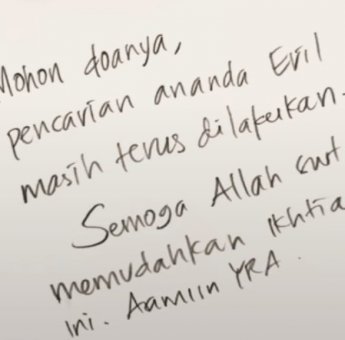 Mohon doanya,
pencarian ananda Eril
masih terus dilakukan.
Semoga Allah swt
memudahkan Ikhtia
ini. Aamiin YRA.